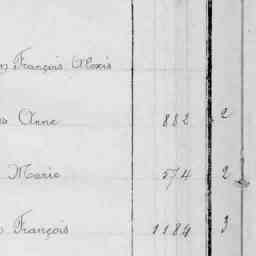 François Alexis
Anne 882 2
Marie 574 2
François 1184 3